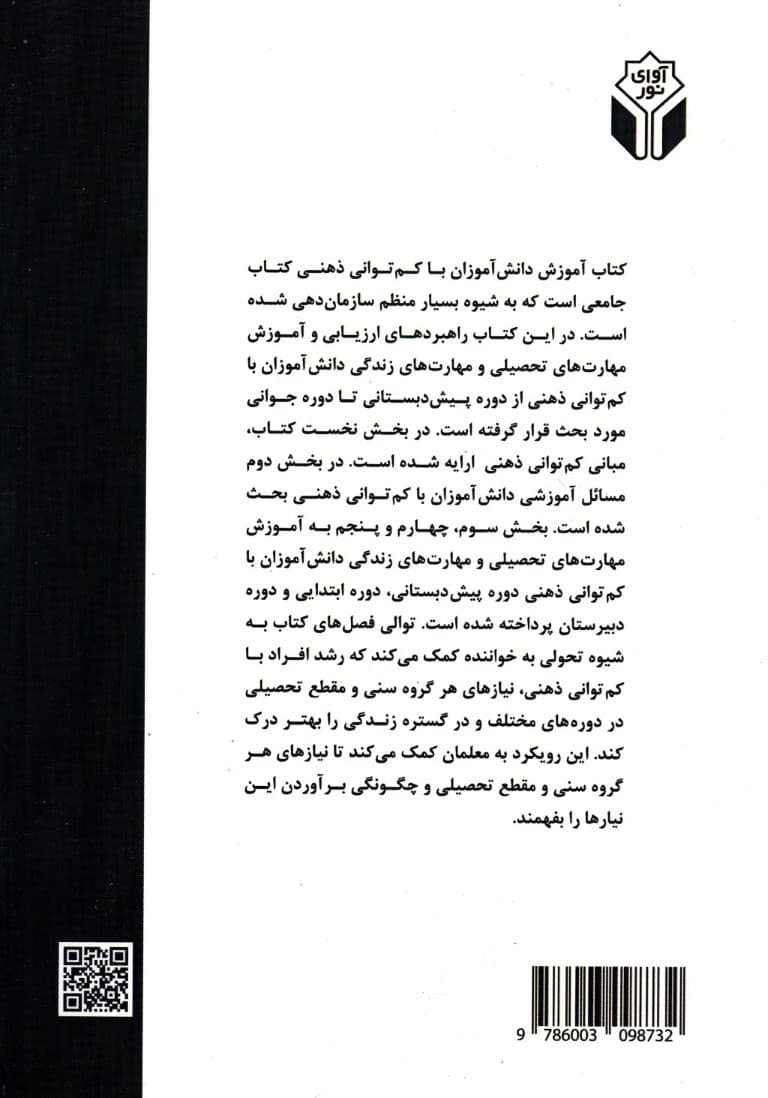 آوای
نور
کتاب آموزش دانش‌آموزان با کم‌توانی ذهنی کتاب
جامعی است که به شیوه بسیار منظم سازمان‌دهی شده
است. در این کتاب راهبردهای ارزیابی و آموزش
مهارت‌های تحصیلی و مهارت‌های زندگی دانش‌آموزان با
کم‌توانی ذهنی از دوره پیش‌دبستانی تا دوره جوانی
مورد بحث قرار گرفته است. در بخش نخست کتاب،
مبانی کم‌توانی ذهنی ارایه شده است. در بخش دوم
مسائل آموزشی دانش‌آموزان با کم‌توانی ذهنی بحث
شده است. بخش سوم، چهارم و پنجم به آموزش
مهارت‌های تحصیلی و مهارت‌های زندگی دانش‌آموزان با
کم‌توانی ذهنی دوره پیش‌دبستانی، دوره ابتدایی و دوره
دبیرستان پرداخته شده است. توالی فصل‌های کتاب به
شیوه تحولی به خواننده کمک می‌کند که رشد افراد با
کم‌توانی ذهنی، نیازهای هر گروه سنی و مقطع تحصیلی
در دوره‌های مختلف و در گستره زندگی را بهتر درک
کند. این رویکرد به معلمان کمک می‌کند تا نیازهای هر
گروه سنی و مقطع تحصیلی و چگونگی برآوردن این
نیارها را بفهمند.
9 786003 098732